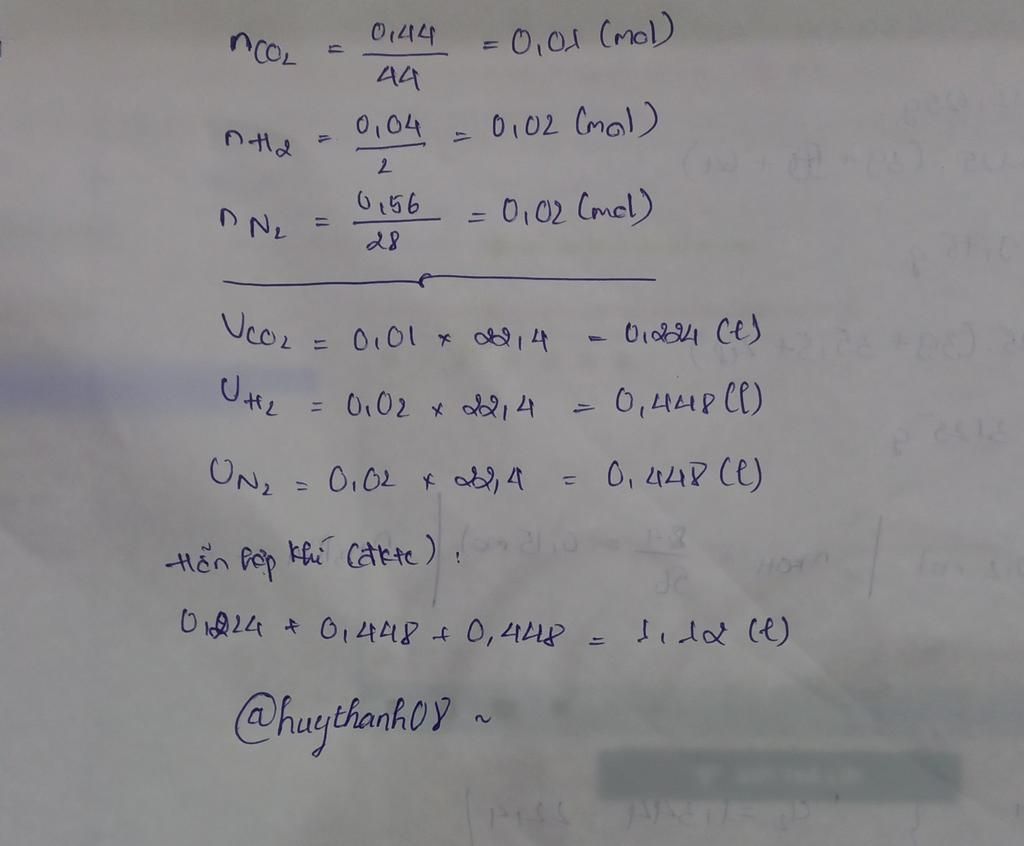 nCO2 = 0,44/44 = 0,01 (mol)
nH2 = 0,04/2 = 0,02 (mol)
nN2 = 0,56/28 = 0,02 (mol)
VCO2 = 0,01 x 22,4 = 0,224 (l)
VH2 = 0,02 x 22,4 = 0,448 (l)
VN2 = 0,02 x 22,4 = 0,448 (l)
Hỗn hợp khí (đktc) :
0,224 + 0,448 + 0,448 = 1,12 (l)
@huythanh08 ~